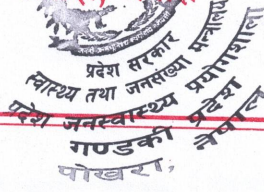 प्रदेश सरकार
स्वास्थ्य तथा जनसंख्या मन्त्रालय
प्रदेश जनस्वास्थ्य प्रयोगशाला
गण्डकी प्रदेश
पोखरा, नेपाल